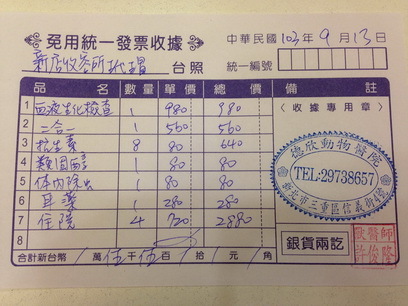 免用統一發票收據
中華民國103年9月13日
新店收容所代理 台照
統一編號
品名 數量 單價 總價 備註
1 血液生化檢查 1 980 980
2 二合一 1 560 560
3 抗生素 8 80 640
4 類固醇 1 80 80
5 體內除虫 1 80 80
6 耳藥 1 280 280
7 住院 4 720 2880
8
合計新台幣 萬 伍 千 伍 百 拾 元 角
〈收據專用章〉
德欣動物醫院
TEL:29738657
新北市三重區信義街4號
銀貨兩訖
獸醫師
許俊隆